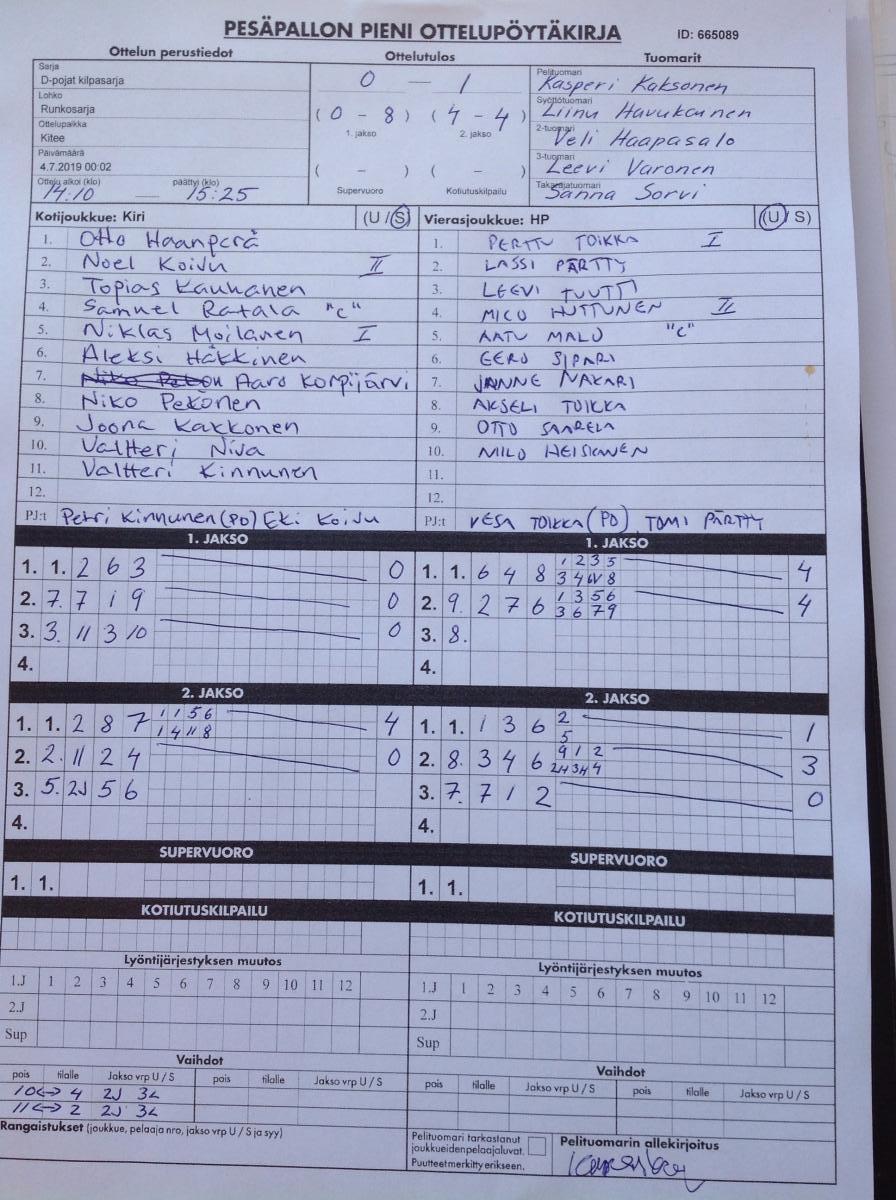 PESÄPALLON PIENI OTTELUPÖYTÄKIRJA ID: 665089
Ottelun perustiedot Ottelutulos Tuomarit
Sarja
D-pojat kilpasarja
Lohko
Runkosarja
Ottelupaikka
Kitee
Päivämäärä
4.7.2019 00:02
Ottelu alkoi (klo) päättyi (klo)
14:10 — 15:25
0 — 1
(0 - 8) (4 - 4)
1. jakso 2. jakso
( - ) ( - )
Supervuoro Kotiutuskilpailu
Pelituomari
Kasperi Kaksonen
Syöttötuomari
Liinu Havukainen
2-tuomari
Veli Haapasalo
3-tuomari
Leevi Varonen
Takarajatuomari
Sanna Sorvi
Kotijoukkue: Kiri (U / S)
1. Otto Haanperä
2. Noel Koivu II
3. Topias Kauhanen
4. Samuel Ratala "C"
5. Niklas Moilanen I
6. Aleksi Häkkinen
7. Aaro Korpijärvi
8. Niko Pekonen
9. Joona Kakkonen
10. Valtteri Niva
11. Valtteri Kinnunen
12.
PJ:t Petri Kinnunen (PO) Eki Koivu
Vierasjoukkue: HP (U / S)
1. PERTTU TOIKKA I
2. LASSI PÄRTTY
3. LEEVI TUUTTI
4. MICO HUTTUNEN II
5. AATU MALO "C"
6. EERO SIPARI
7. JANNE NAKARI
8. AKSELI TOIKKA
9. OTTO SAARELA
10. MILO HEISKANEN
11.
12.
PJ:t VESA TOIKKA (PO) TOMI PÄRTTY
1. JAKSO
1. 1. 2 6 3 0
2. 7. 7 1 9 0
3. 3. 11 3 10 0
4.
1. JAKSO
1 2 3 5
1. 1. 6 4 8 4
2. 9. 2 7 6 4
1 3 5 6
3 6 7 9
3. 8.
4.
2. JAKSO
1 1 5 6
1. 1. 2 8 7 4
1 4 11 8
2. 2. 11 2 4 0
3. 5. 2J 5 6
4.
2. JAKSO
1. 1. 1 3 6 2 1
5
2. 8. 3 4 6 9 1 2 3
3. 7. 7 1 2 0
4.
SUPERVUORO
1. 1.
SUPERVUORO
1. 1.
KOTIUTUSKILPAILU
KOTIUTUSKILPAILU
Lyöntijärjestyksen muutos
1.J 1 2 3 4 5 6 7 8 9 10 11 12
2.J
Sup
Lyöntijärjestyksen muutos
1.J 1 2 3 4 5 6 7 8 9 10 11 12
2.J
Sup
Vaihdot
pois tilalle Jakso vrp U / S pois tilalle Jakso vrp U / S
10 <-> 4 2J 3L
11 <-> 2 2J 3L
Vaihdot
pois tilalle Jakso vrp U / S pois tilalle Jakso vrp U / S
Rangaistukset (joukkue, pelaaja nro, jakso vrp U / S ja syy)
Pelituomari tarkastanut
joukkueiden pelaajaluvat.
Puutteet merkitty erikseen.
Pelituomarin allekirjoitus